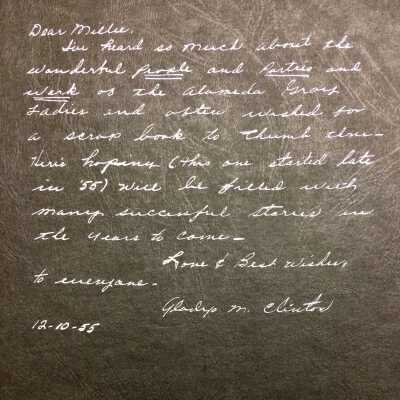 Dear Millie,
I've heard so much about the
wonderful people and parties and
work of the Alameda Group
Ladies and often wished for
a scrap book to thumb thru-
Here's hoping (this one started late
in '55) will be filled with
many successful stories in
the years to come-
Love & Best Wishes
to everyone.
Gladys M. Clinton
12-10-55